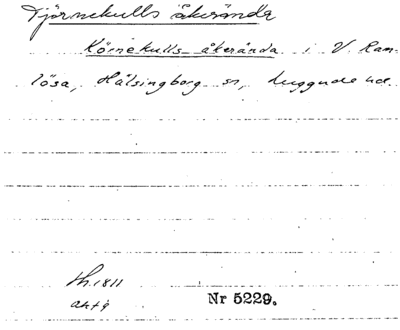 Tjörnekulls åkerända
Körnekulls åkerända i V. Ram-
lösa, Hälsingborg sn, Luggude hd.
Sh. 1811
akt 9
Nr 5229.